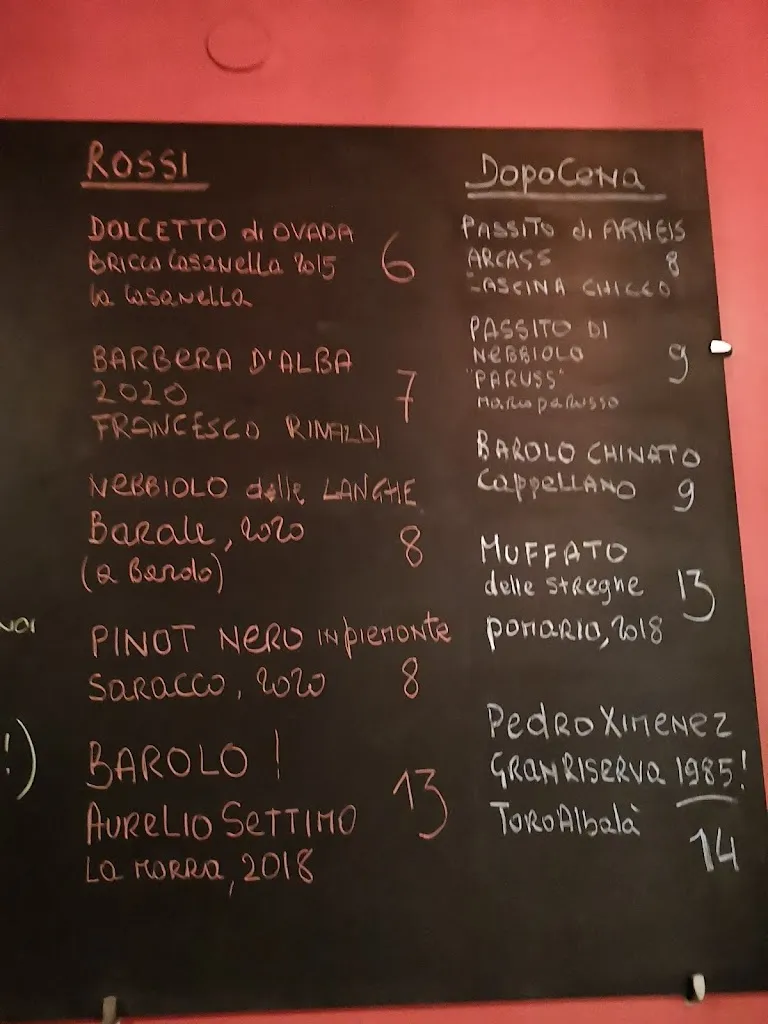 ROSSI
DOLCETTO di OVADA
BRICCO Casanella 2015
la Casanella
6
BARBERA D'ALBA
2020
FRANCESCO RINALDI
7
NEBBIOLO delle LANGHE
Barale, 2020
(a Barolo)
8
PINOT NERO IN PIEMONTE
SARACCO, 2020 8
BAROLO!
AURELIO SETTIMO
LA MORRA, 2018
13
DOPOCENA
PASSITO di ARNEIS
ARCASS 8
CASCINA CHICCO
PASSITO DI
NEBBIOLO
"PARUSS"
Mario parusso
9
BAROLO CHINATO
Cappellano 9
MUFFATO
delle streghe
pomario, 2018
13
PEDRO XIMENEZ
GRAN RISERVA 1985!
TORO Albalà
14
!)